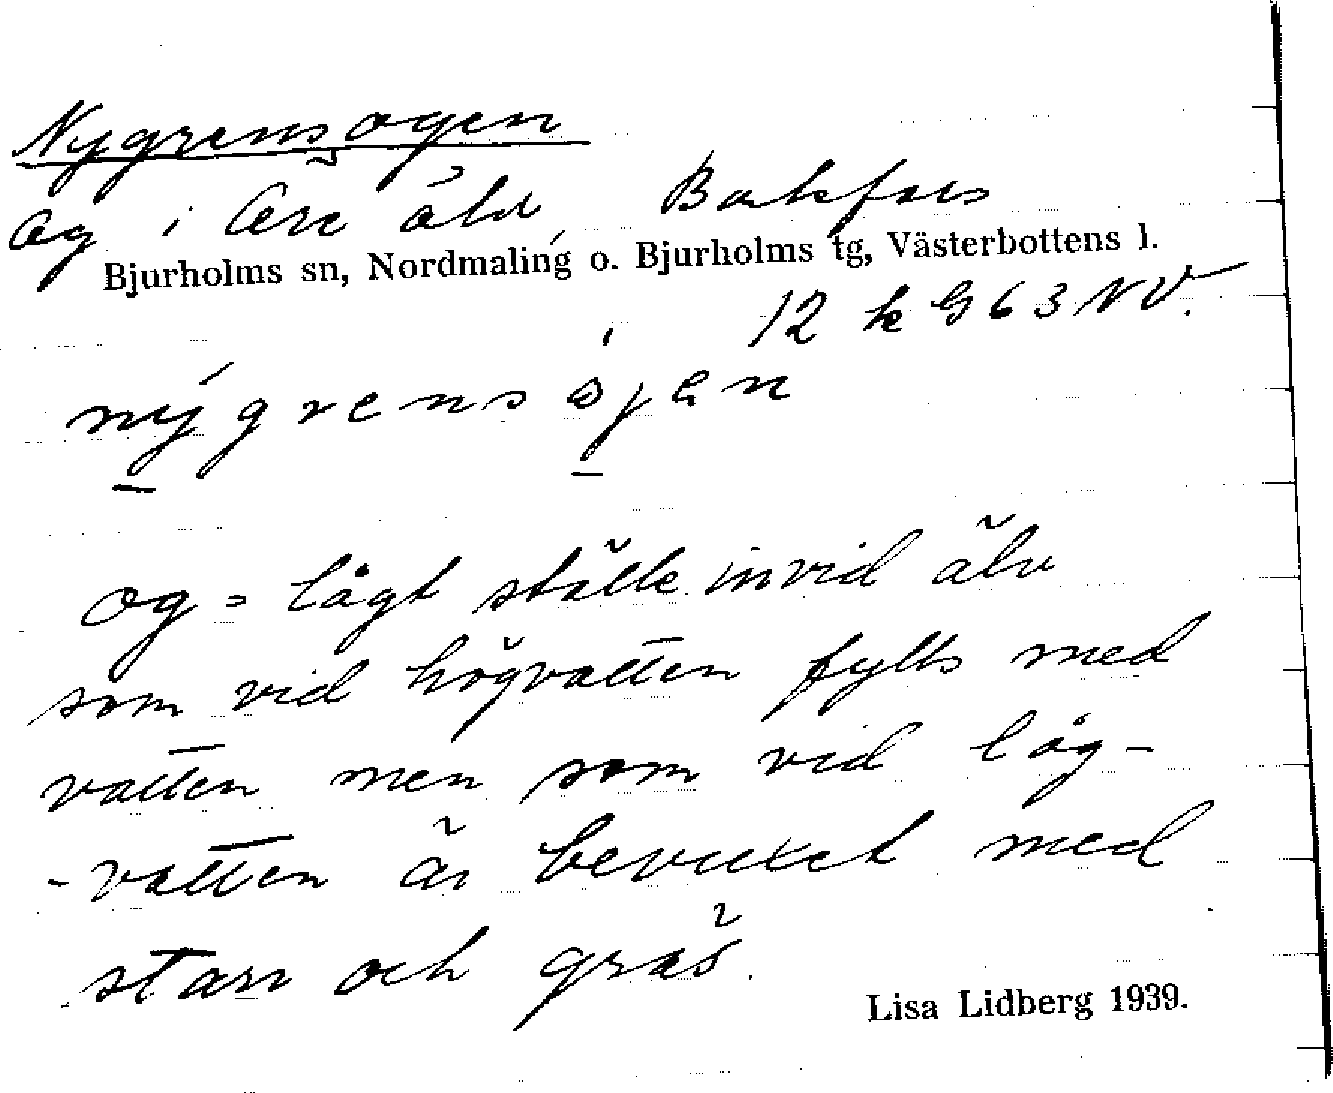 Nygrensogen
Og i Öre älv, Bakfors
Bjurholms sn, Nordmaling o. Bjurholms tg, Västerbottens l.
12 k G 63 NV.
nýgrensòjen
og = lågt ställe invid älv
som vid högvatten fylls med
vatten men som vid låg-
-vatten är bevuxet med
starr och gräs.
Lisa Lidberg 1939.